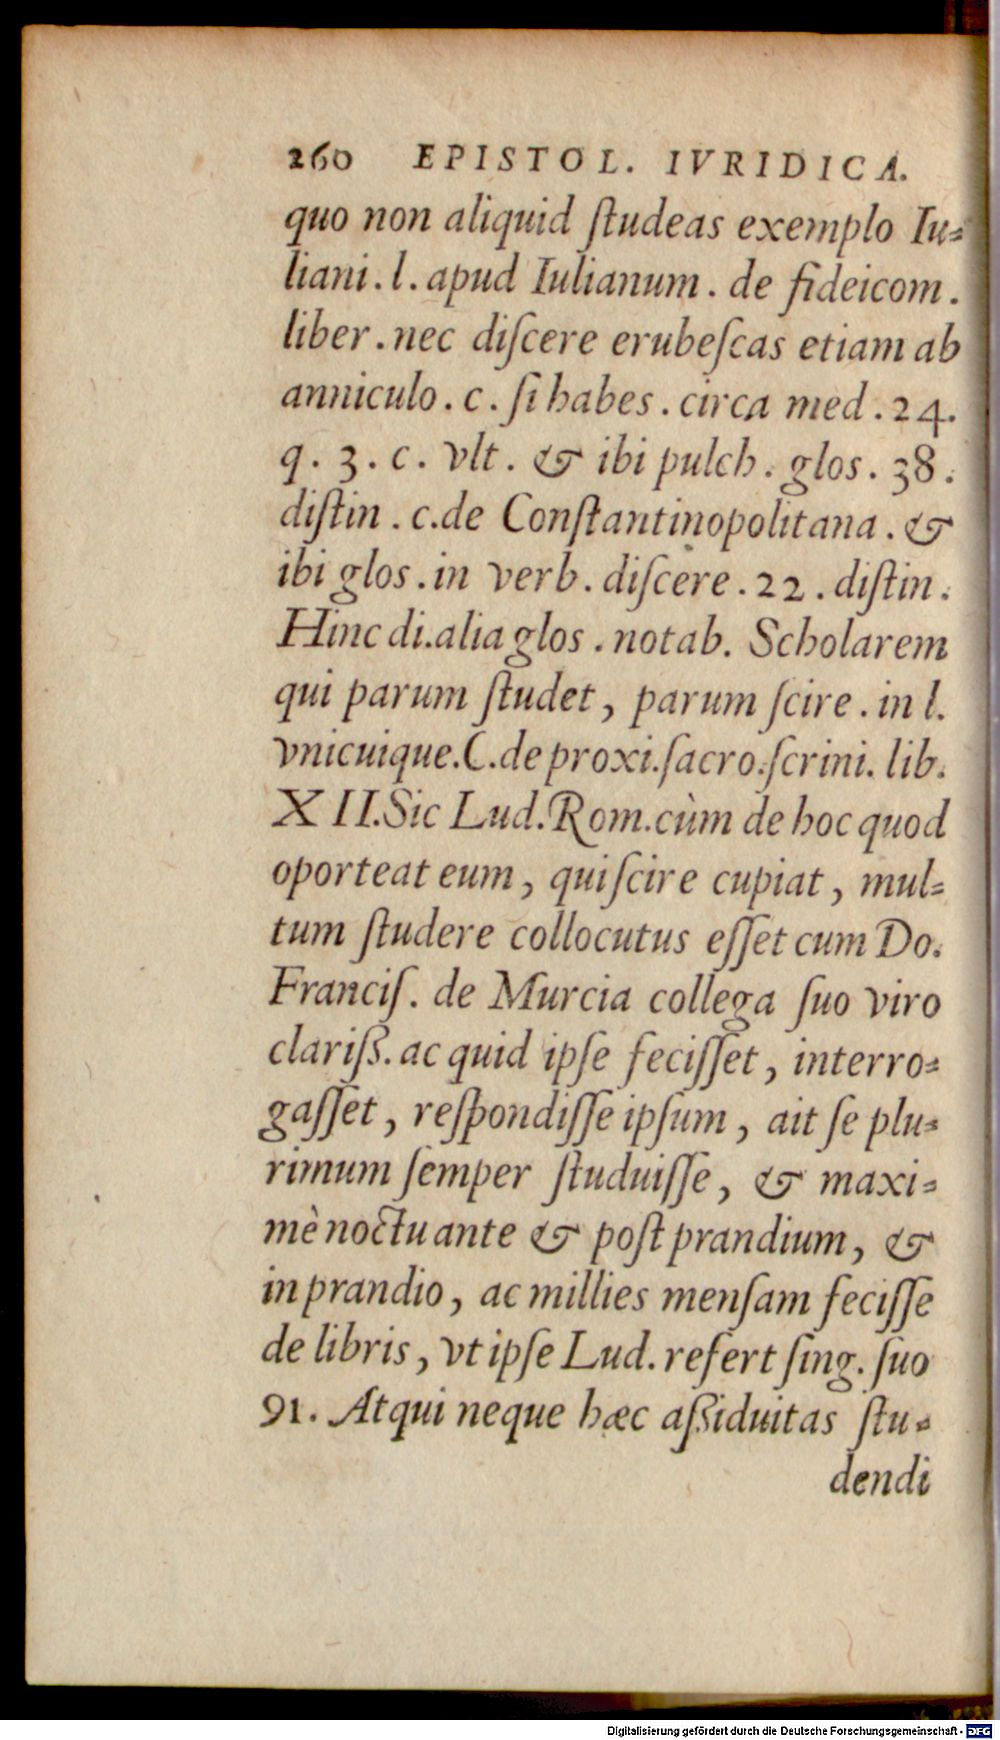 260 EPISTOL. IVRIDICA.
quo non aliquid ſtudeas exemplo Iu-
liani. l. apud Iulianum. de fideicom.
liber. nec diſcere erubeſcas etiam ab
anniculo. c. ſi habes. circa med. 24.
q. 3. c. vlt. & ibi pulch. glos. 38.
diſtin. c. de Conſtantinopolitana. &
ibi glos. in verb. diſcere. 22. diſtin.
Hinc di. alia glos. notab. Scholarem
qui parum ſtudet, parum ſcire. in l.
vnicuique. C. de proxi. ſacro. ſcrini. lib.
XII. Sic Lud. Rom. cùm de hoc quod
oporteat eum, qui ſcire cupiat, mul-
tum ſtudere collocutus eſſet cum Do.
Franciſ. de Murcia collega ſuo viro
clariß. ac quid ipſe feciſſet, interro-
gaſſet, reſpondiſſe ipſum, ait ſe plu-
rimum ſemper ſtuduiſſe, & maxi-
mè noctu ante & poſt prandium, &
in prandio, ac millies menſam feciſſe
de libris, vt ipſe Lud. refert ſing. ſuo
91. Atqui neque hæc aßiduitas ſtu-
dendi
Digitalisierung gefördert durch die Deutsche Forschungsgemeinschaft - DFG